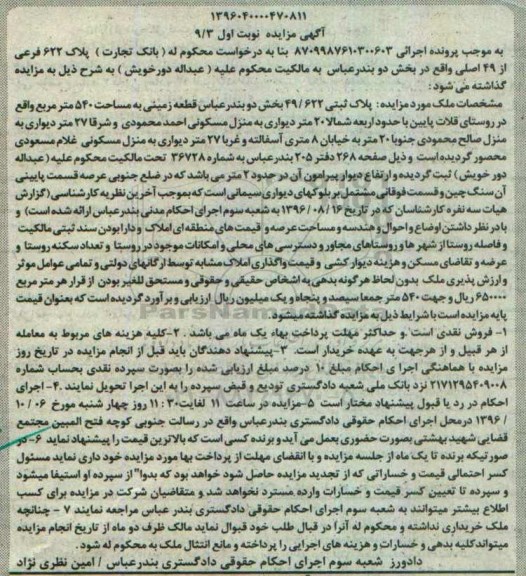 ۱۳۹۶۰۴۰۰۰۰۴۷۰۸۱۱
آگهی مزایده نوبت اول ۹/۳
به موجب پرونده اجرائی ۸۷۰۹۹۸۷۶۱۰۳۰۰۶۰۳ بنا به درخواست محکوم له ( بانک تجارت ) پلاک ۶۲۲ فرعی
از ۴۹ اصلی واقع در بخش دو بندرعباس به مالکیت محکوم علیه ( عبداله دورخویش ) به شرح ذیل به مزایده
گذاشته می شود :
مشخصات ملک مورد مزایده : پلاک ثبتی ۴۹/۶۲۲ بخش دو بندرعباس قطعه زمینی به مساحت ۵۴۰ متر مربع واقع
در روستای قلات پایین با حدود اربعه شمالا ۲۰ متر دیواری به منزل مسکونی احمد محمودی و شرقا ۲۷ متر دیواری به
منزل صالح محمودی جنوبا ۲۰ متر به خیابان ۸ متری آسفالته و غربا ۲۷ متر دیواری به منزل مسکونی غلام مسعودی
محصور گردیده است و ذیل صفحه ۲۶۸ دفتر ۲۰۵ بندرعباس به شماره ۳۶۷۲۸ تحت مالکیت محکوم علیه ( عبداله
دور خویش ) ثبت گردیده و ارتفاع دیوار پیرامون آن در حدود ۲ متر می باشد که در ضلع جنوبی عرصه قسمت پایینی
آن سنگ چین و قسمت فوقانی مشتمل بر بلوکهای دیواری سیمانی است که بموجب آخرین نظریه کارشناسی ( گزارش
هیات سه نفره کارشناسان که در تاریخ ۱۶ / ۰۸ / ۱۳۹۶ به شعبه سوم اجرای احکام مدنی بندرعباس ارائه شده است ) و
با در نظر داشتن اوضاع و احوال و هندسه و مساحت عرصه و قیمت های منطقه ای املاک و دارا بودن سند ثبتی مالکیت
و فاصله روستا از شهر ها و روستاهای مجاور و دسترسی های محلی و امکانات موجود در روستا و تعداد سکنه روستا و
عرضه و تقاضای مسکن و هزینه دیوار کشی و قیمت واگذاری املاک مشابه توسط ارگانهای دولتی و تمامی عوامل موثر
و ارزش پذیری ملک بدون لحاظ هرگونه بدهی به اشخاص حقیقی و حقوقی و مستحق للغیر بودن از قرار هر متر مربع
۶۵۰۰۰۰ ریال و جهت ۵۴۰ متر جمعا سیصد و پنجاه و یک میلیون ریال ارزیابی و برآورد گردیده است که بعنوان قیمت
پایه مزایده است با شرایط ذیل به مزایده گذاشته میشود .
۱- فروش نقدی است و حداکثر مهلت پرداخت بهاء یک ماه می باشد . ۲-کلیه هزینه های مربوط به معامله
از هر قبیل و از هرجهت به عهده خریدار است. ۳-پیشنهاد دهندگان باید قبل از انجام مزایده در تاریخ روز
مزایده با هماهنگی اجرا ی احکام مبلغ ۱۰ درصد مبلغ ارزیابی شده را بصورت سپرده نقدی بحساب شماره
۲۱۷۱۲۹۵۴۰۹۰۰۸ نزد بانک ملی شعبه دادگستری تودیع و قبض سپرده را به این اجرا تحویل نمایند .۴- اجرای
احکام در رد یا قبول پیشنهاد مختار است ۵-مزایده در ساعت ۱۱ لغایت ۱۱:۳۰ روز چهار شنبه مورخ ۰۶ / ۱۰
/ ۱۳۹۶ درمحل اجرای احکام حقوقی دادگستری بندرعباس واقع در رسالت جنوبی کوچه فتح المبین مجتمع
قضایی شهید بهشتی بصورت حضوری بعمل می آید و برنده کسی است که بالاترین قیمت را پیشنهاد نماید ۶- در
صورتیکه برنده تا یک ماه از جلسه مزایده و با انقضای مهلت از پرداخت بها مورد مزایده خود داری نماید مسئول
کسر احتمالی قیمت و خساراتی که از تجدید مزایده حاصل شود خواهد بود که بدوا" از سپرده او استیفا میشود
و سپرده تا تعیین کسر قیمت و خسارات وارده مسترد نخواهد شد و متقاضیان شرکت در مزایده برای کسب
اطلاع بیشتر میتوانند به شعبه سوم اجرای احکام حقوقی دادگستری بندر عباس مراجعه نمایند ۷ – چنانچه
ملک خریداری نداشته و محکوم له آنرا در قبال طلب خود قبوال نماید مالک ظرف دو ماه از تاریخ انجام مزایده
میتواند کلیه بدهی و خسارات و هزینه های اجرایی را پرداخته و مانع انتثال ملک به محکوم له شود .
دادورز شعبه سوم اجرای احکام حقوقی دادگستری بندرعباس / امین نظری نژاد